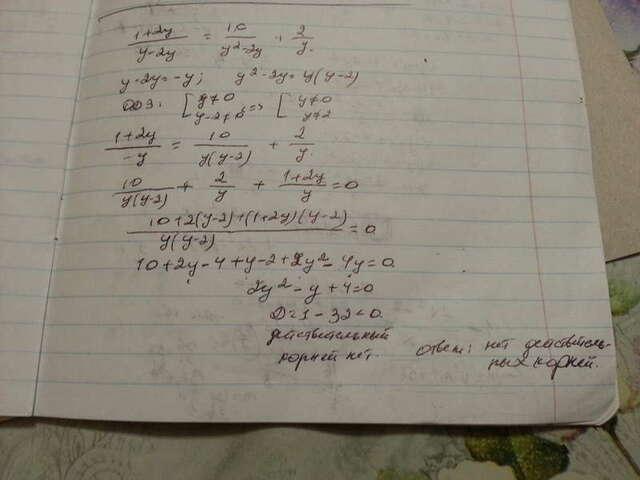 (1+2y)/(y-2y) = 10/(y²-2y) + 2/y.
y-2y=-y; y²-2y=y(y-2)
ОДЗ: [y≠0 y-2≠0 => [y≠0 y≠2
(1+2y)/(-y) = 10/(y(y-2)) + 2/y.
10/(y(y-2)) + 2/y + (1+2y)/y =0
(10+2(y-2)+(1+2y)(y-2))/(y(y-2)) =0
10+2y-4+y-2+2y²-4y=0
2y²-y+4=0
D=1-32<0.
действительный
корней нет.
ответ: нет действитель-
ных корней.